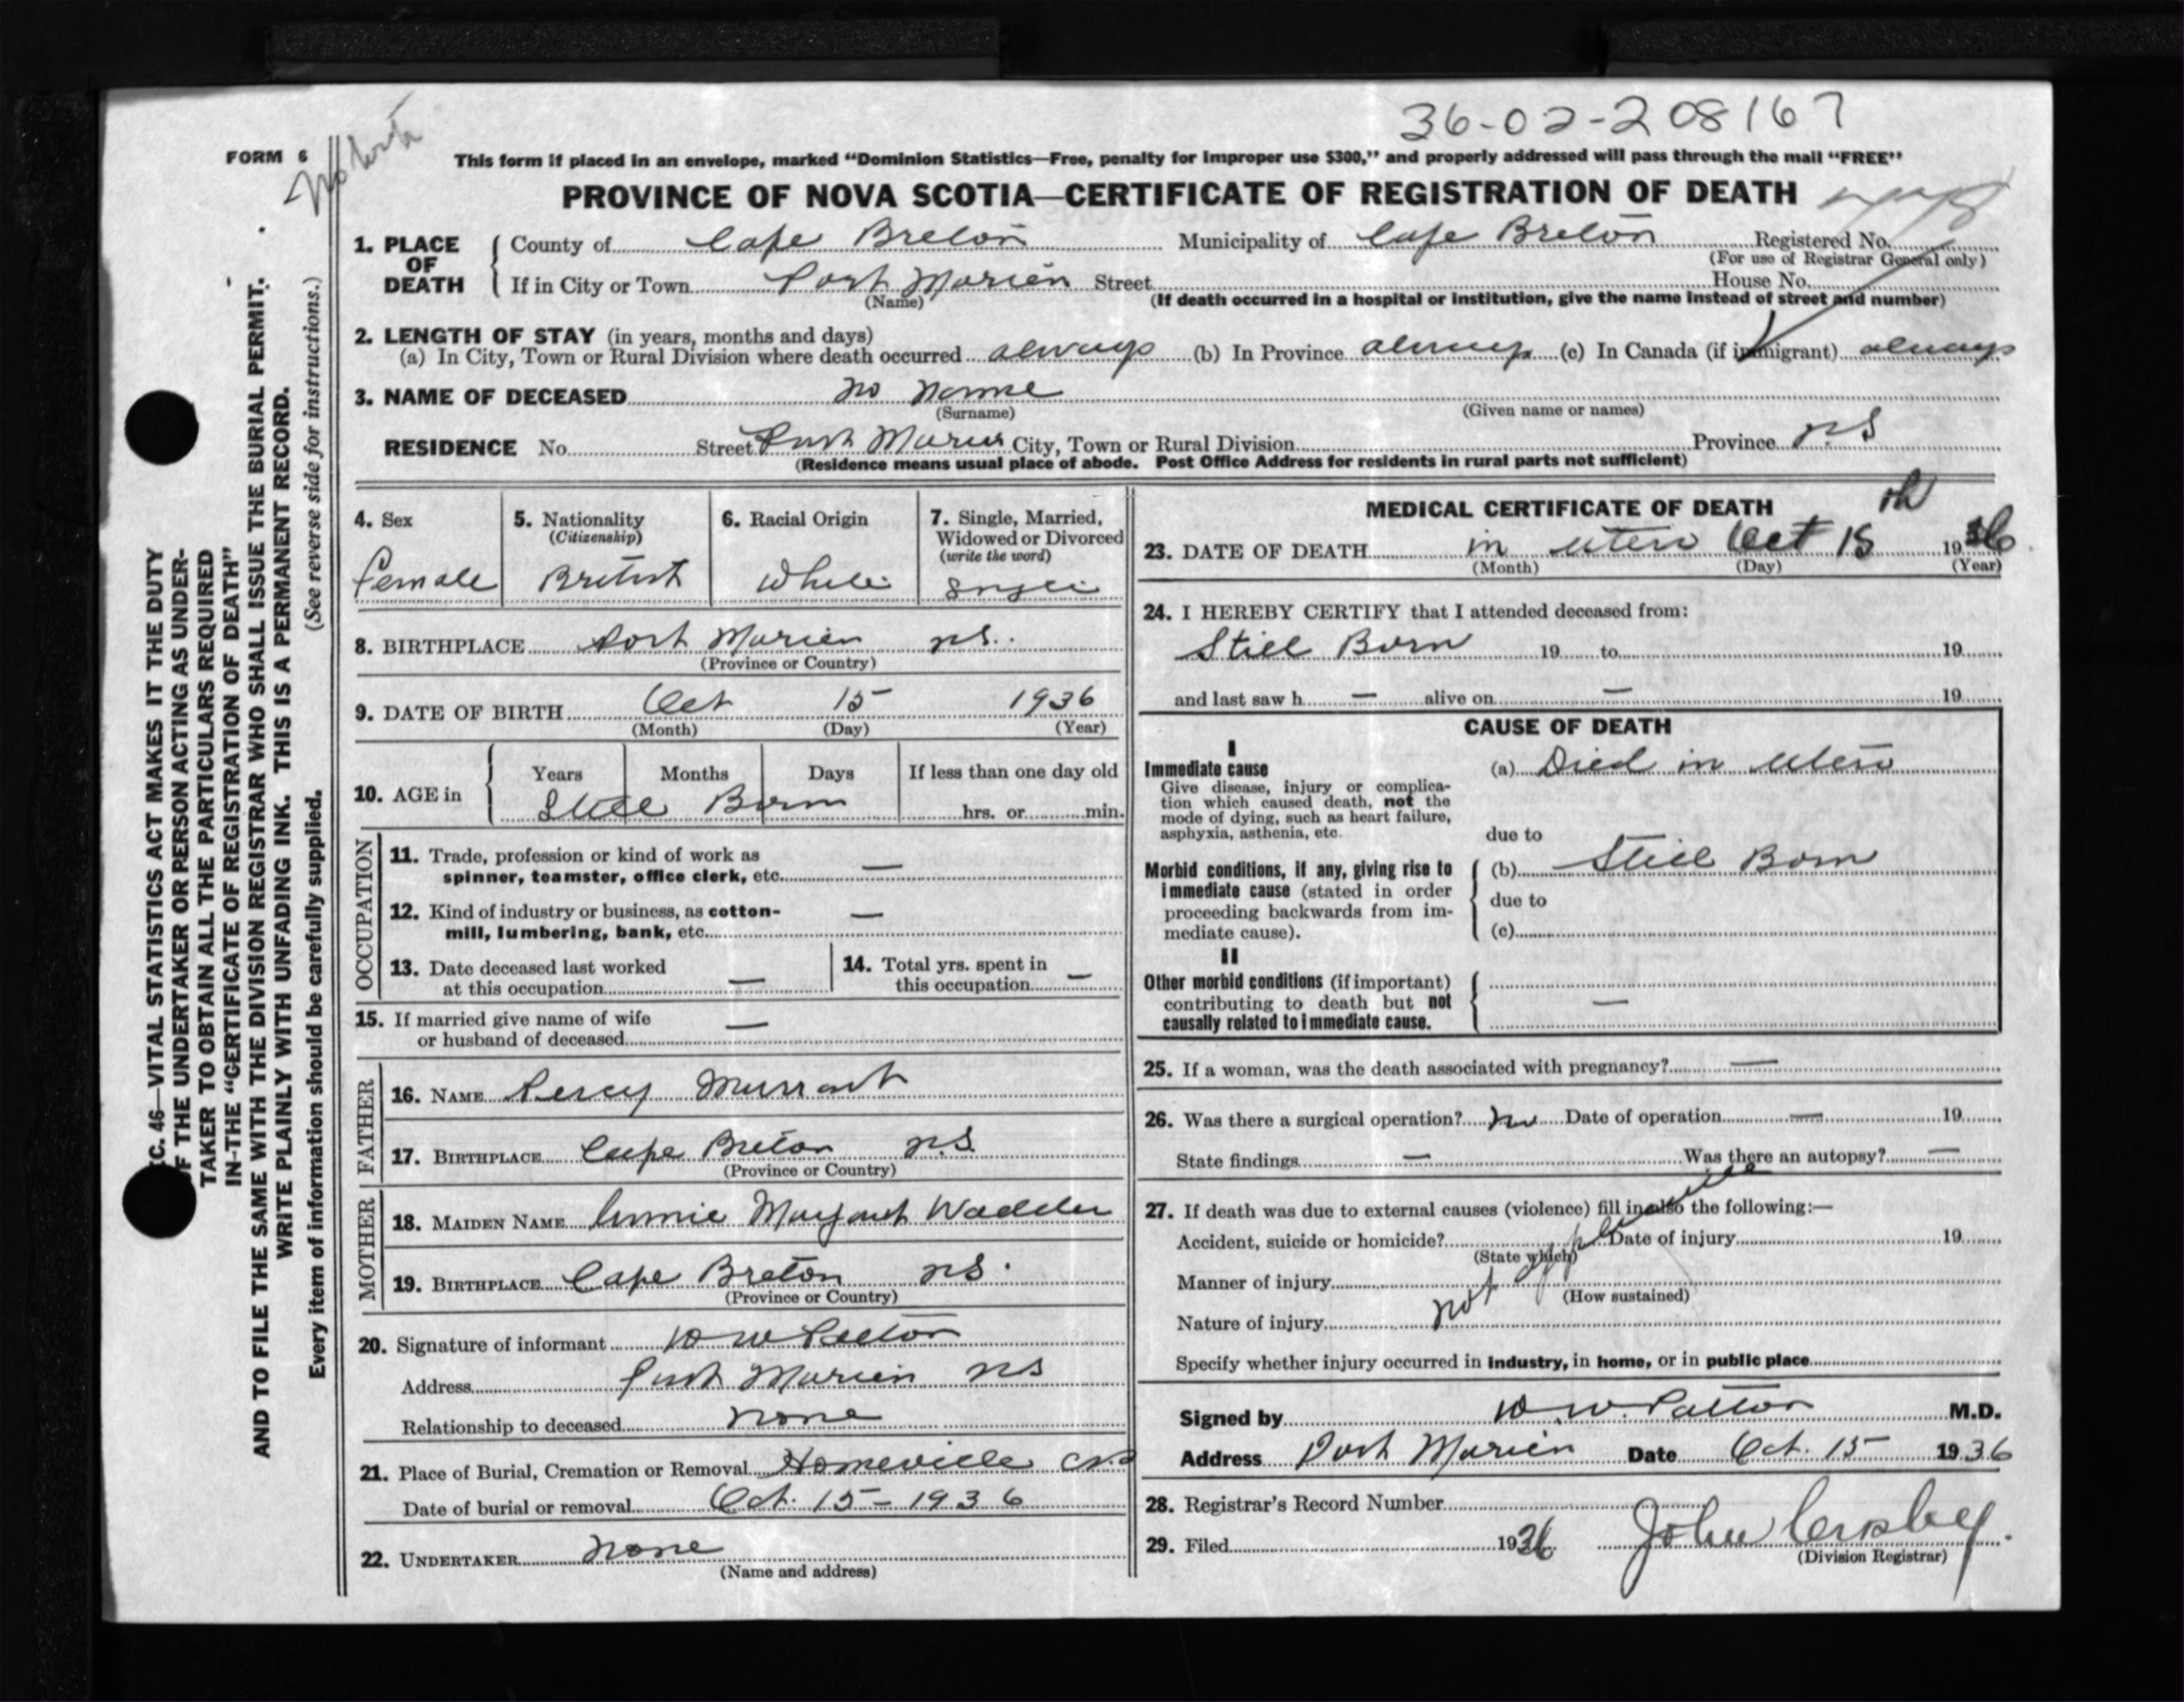 36-02-208167
FORM 6
This form if placed in an envelope, marked “Dominion Statistics—Free, penalty for improper use $300,” and properly addressed will pass through the mail “FREE”
PROVINCE OF NOVA SCOTIA—CERTIFICATE OF REGISTRATION OF DEATH
1. PLACE OF DEATH
County of Cape Breton Municipality of Cape Breton Registered No.
(For use of Registrar General only)
If in City or Town Port Morien Street House No.
(Name) (If death occurred in a hospital or institution, give the name instead of street and number)
2. LENGTH OF STAY (in years, months and days)
(a) In City, Town or Rural Division where death occurred always (b) In Province always (c) In Canada (if immigrant) always
3. NAME OF DECEASED no name
(Surname) (Given name or names)
RESIDENCE No. Street Port Morien City, Town or Rural Division Province N.S
(Residence means usual place of abode. Post Office Address for residents in rural parts not sufficient)
4. Sex
female
5. Nationality
(Citizenship)
British
6. Racial Origin
White
7. Single, Married,
Widowed or Divorced
(write the word)
Single
8. BIRTHPLACE Port Morien N.S.
(Province or Country)
9. DATE OF BIRTH Oct 15 1936
(Month) (Day) (Year)
10. AGE in
Years Months Days If less than one day old
Still Born hrs. or min.
OCCUPATION
11. Trade, profession or kind of work as
spinner, teamster, office clerk, etc. —
12. Kind of industry or business, as cotton-
mill, lumbering, bank, etc. —
13. Date deceased last worked
at this occupation —
14. Total yrs. spent in
this occupation —
15. If married give name of wife
or husband of deceased —
FATHER
16. NAME Percy Murrant
17. BIRTHPLACE Cape Breton N.S.
(Province or Country)
MOTHER
18. MAIDEN NAME Annie Margaret Wadden
19. BIRTHPLACE Cape Breton N.S.
(Province or Country)
20. Signature of informant D W Patton
Address Port Morien N.S
Relationship to deceased none
21. Place of Burial, Cremation or Removal Homeville
Date of burial or removal Oct. 15 - 1936
22. UNDERTAKER none
(Name and address)
MEDICAL CERTIFICATE OF DEATH
23. DATE OF DEATH in utero Oct 15th 1936
(Month) (Day) (Year)
24. I HEREBY CERTIFY that I attended deceased from:
Still Born 19 to 19
and last saw h — alive on — 19
CAUSE OF DEATH
I
Immediate cause
Give disease, injury or complica-
tion which caused death, not the
mode of dying, such as heart failure,
asphyxia, asthenia, etc.
(a) Died in utero
due to
Morbid conditions, if any, giving rise to
immediate cause (stated in order
proceeding backwards from im-
mediate cause).
(b) Still Born
due to
(c)
II
Other morbid conditions (if important)
contributing to death but not
causally related to immediate cause.
—
25. If a woman, was the death associated with pregnancy? —
26. Was there a surgical operation? no Date of operation — 19
State findings — Was there an autopsy? —
27. If death was due to external causes (violence) fill in also the following:—
Accident, suicide or homicide? Date of injury 19
(State which)
Manner of injury
(How sustained)
Nature of injury
not applicable
Specify whether injury occurred in industry, in home, or in public place
Signed by D. W. Patton M.D.
Address Port Morien Date Oct. 15 1936
28. Registrar's Record Number
29. Filed 1936 John
(Division Registrar)
C. 46—VITAL STATISTICS ACT MAKES IT THE DUTY
OF THE UNDERTAKER OR PERSON ACTING AS UNDER-
TAKER TO OBTAIN ALL THE PARTICULARS REQUIRED
IN THE “CERTIFICATE OF REGISTRATION OF DEATH”
AND TO FILE THE SAME WITH THE DIVISION REGISTRAR WHO SHALL ISSUE THE BURIAL PERMIT.
WRITE PLAINLY WITH UNFADING INK. THIS IS A PERMANENT RECORD.
Every item of information should be carefully supplied. (See reverse side for instructions.)